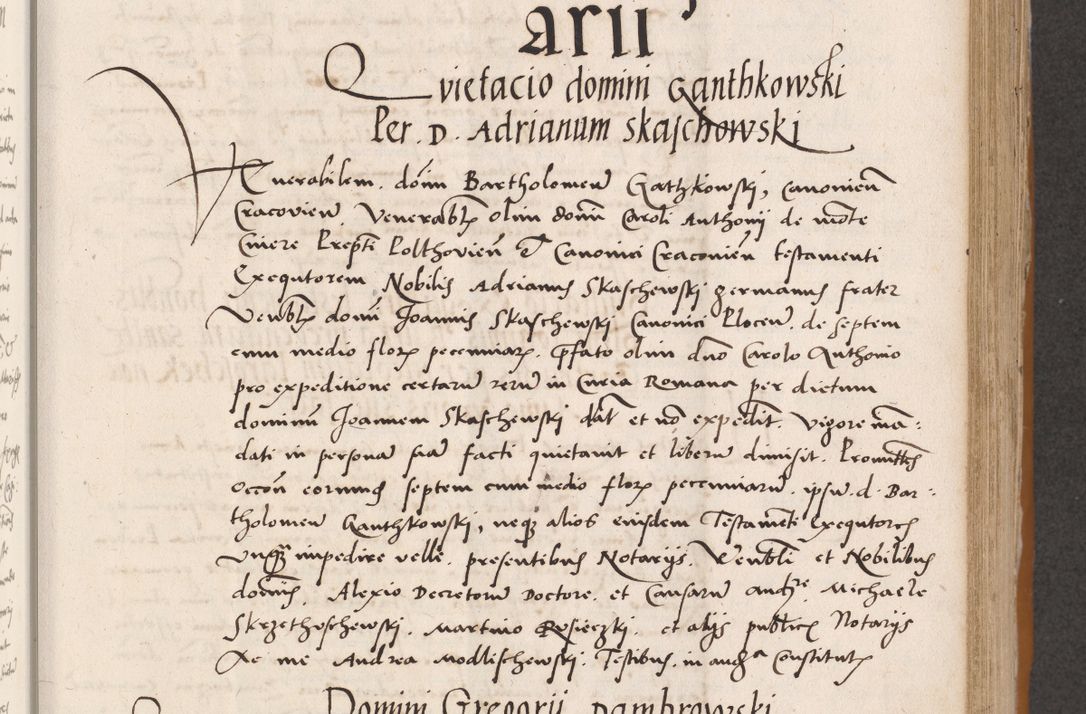 arii
Quietacio domini Ganthkowski
Per. D. Adrianum Skaschowski
Venerabilem. domi Bartholomeu Gathkowskj, canonicu
Cracovien. Venerablis olim domi Caroli Anthonij de mote
Cuiere Prepti Polthovien et Canonici Cracovien testamenti
Exequtorem Nobilis Adrianus Skaschewskj germanus frater
Venblis domi Joannis Skaschewskj Canonici Plocen. de septem
cum medio flor pecuniar. pfato olim dno Carolo Anthonio
pro expeditione certaru reru in Curia Romana per dictum
dominu Joannem Skaschewskj dat et no expedit. vigore ma:
dati in persona sua facti quietavit et liberu dimisit. Promittes
occon eorundem septem cum medio flor pecuniaru. ipsu. d. Bar-:
tholomeu Ganthkowskj, neque alios eiusdem Testameti exequtores
unq impedire velle. presentibus Notarijs. Venbli et Nobilibus
domis. Alexio Decretoru Doctore. et Causaru audre. Michaele
Skrzethuschewskj. Martino Rosieczkj. et alijs publicis Notarijs
Ac me Andrea Modlischewskj. Testibus. in audia Constitutis
Domini Gregorii Dambrowski